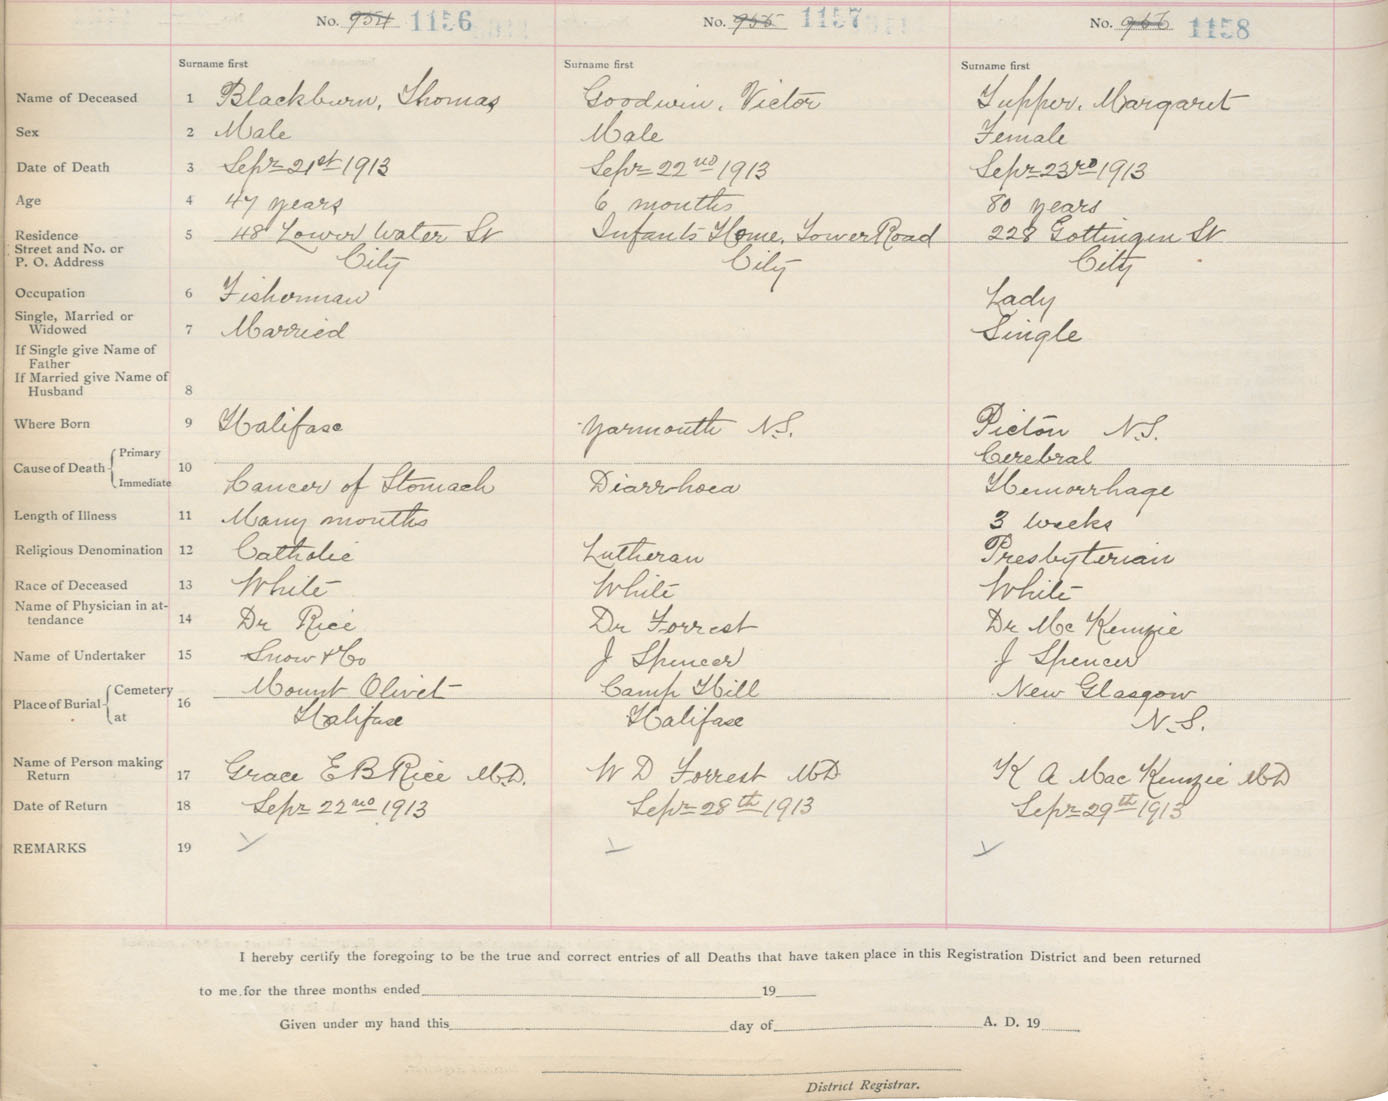 No. 954 1156 No. 955 1157 No. 1158
Surname first Surname first Surname first
Name of Deceased 1 Blackburn, Thomas Goodwin, Victor Tupper, Margaret
Sex 2 Male Male Female
Date of Death 3 Sept 21st 1913 Sept 22nd 1913 Sept 23rd 1913
Age 4 47 years 6 months 80 years
Residence 5 48 Lower Water St Infants Home, Tower Road 228 Gottingen St
Street and No. or
P. O. Address City City City
Occupation 6 Fisherman Lady
Single, Married or
Widowed 7 Married Single
If Single give Name of
Father
If Married give Name of
Husband 8
Where Born 9 Halifax Yarmouth N.S. Pictou N.S.
Cause of Death Primary 10 Cerebral
Immediate Cancer of Stomach Diarrhoea Hemorrhage
Length of Illness 11 Many months 3 weeks
Religious Denomination 12 Catholic Lutheran Presbyterian
Race of Deceased 13 White White White
Name of Physician in at-
tendance 14 Dr Rice Dr Forrest Dr McKenzie
Name of Undertaker 15 Snow & Co J Spencer J Spencer
Place of Burial Cemetery 16 Mount Olivet Camp Hill New Glasgow
at Halifax Halifax N.S.
Name of Person making
Return 17 Grace E B Rice M.D. W D Forrest MD K A MacKenzie MD
Date of Return 18 Sept 22nd 1913 Sept 28th 1913 Sept 29th 1913
REMARKS 19
I hereby certify the foregoing to be the true and correct entries of all Deaths that have taken place in this Registration District and been returned
to me for the three months ended 19
Given under my hand this day of A. D. 19
District Registrar.